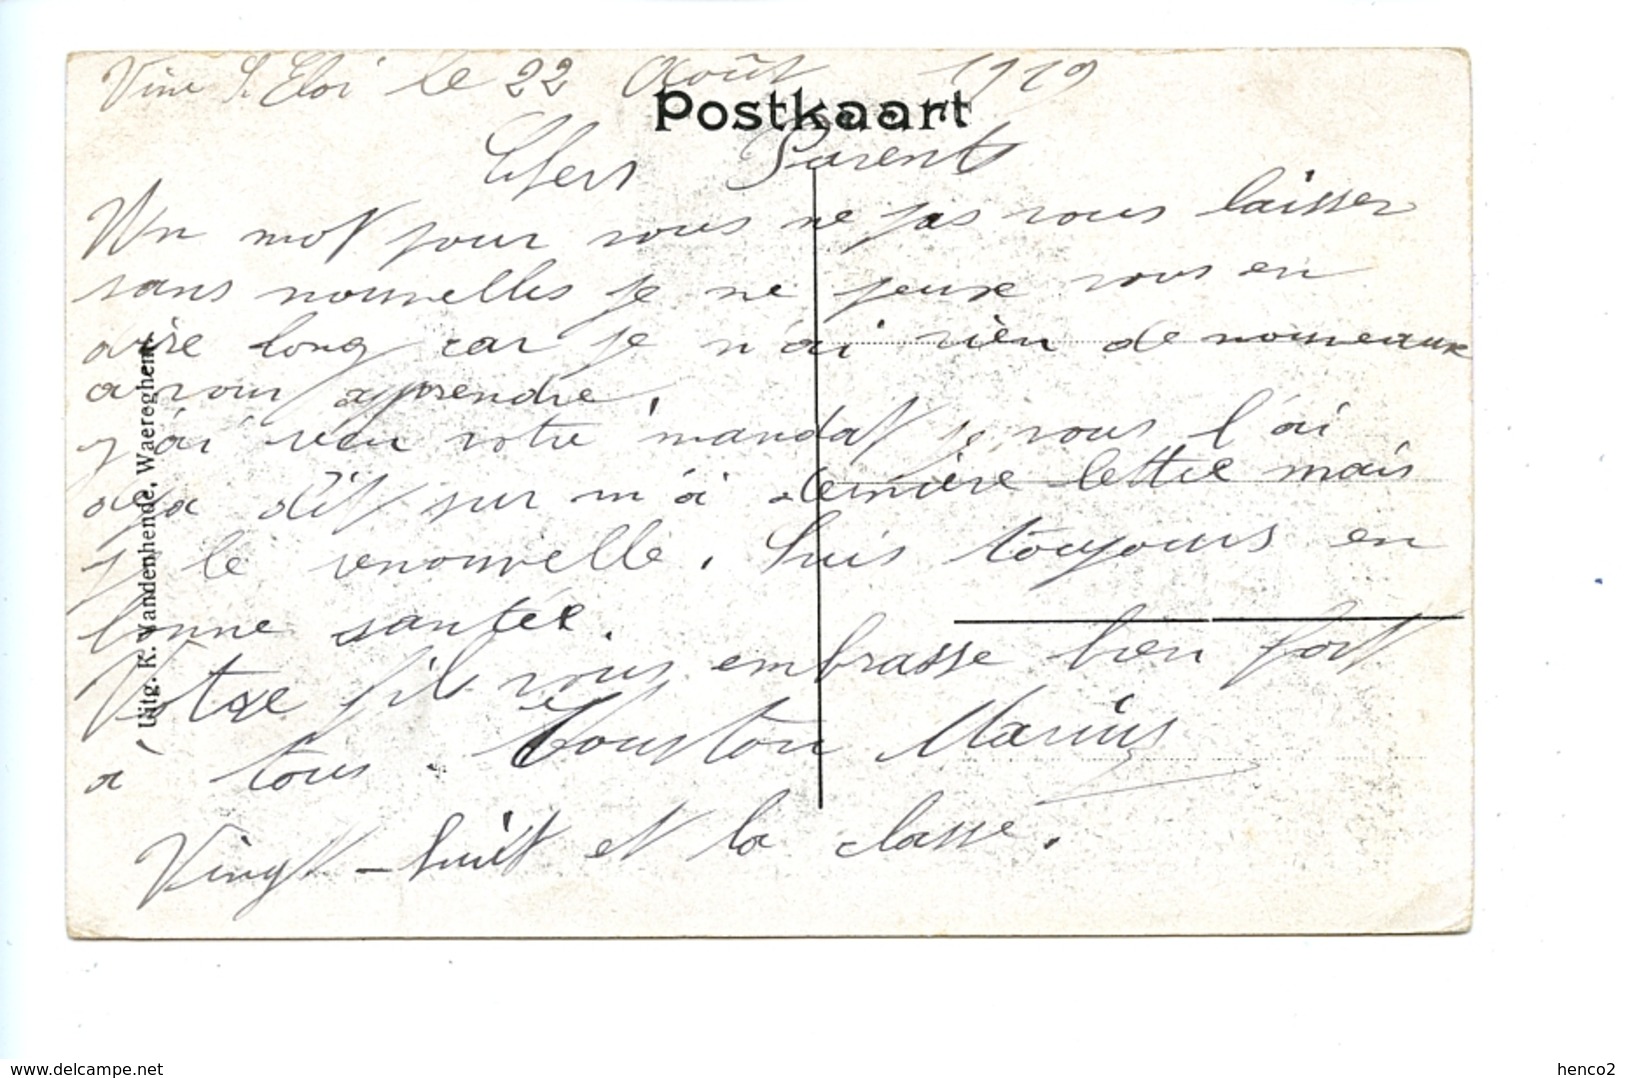 Vive S. Eloi le 22 Août 1919
Postkaart
Chers Parents
Un mot pour vous ne pas vous laisser
sans nouvelles je ne peux vous en
dire long car je n'ai rien de nouveaux
a vous apprendre.
j'ai reçu votre mandat je vous l'ai
deja dit sur m'a derniere lettre mais
je le renouvelle. Suis toujours en
bonne santée.
Votre fils vous embrasse bien fort
à tous. Marius
Vingt-huit et la classe.
Uitg. K. Vandenhende, Waereghem.
www.delcampe.net
henco2